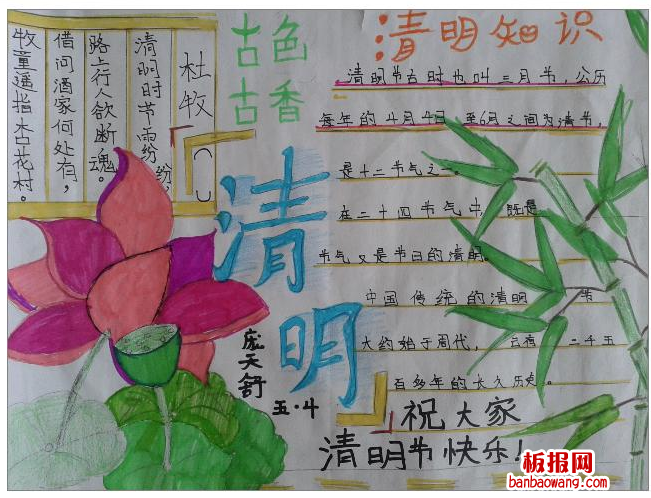 古色
古香
清明知识
杜牧
清明时节雨纷纷,
路上行人欲断魂。
借问酒家何处有,
牧童遥指杏花村。
清明节古时也叫三月节，公历
每年的4月4日 至6月之间为清节,
是十二节气之一。
在二十四节气中, 既是
节气又是节日的清明。
中国传统的清明 节
大约始于周代, 二千五
百多年的长久历史。
清明
庞天舒
五·4
祝大家
清明节快乐!
板报网
banbaowang.com